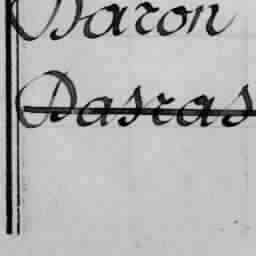 Baron
Dasras